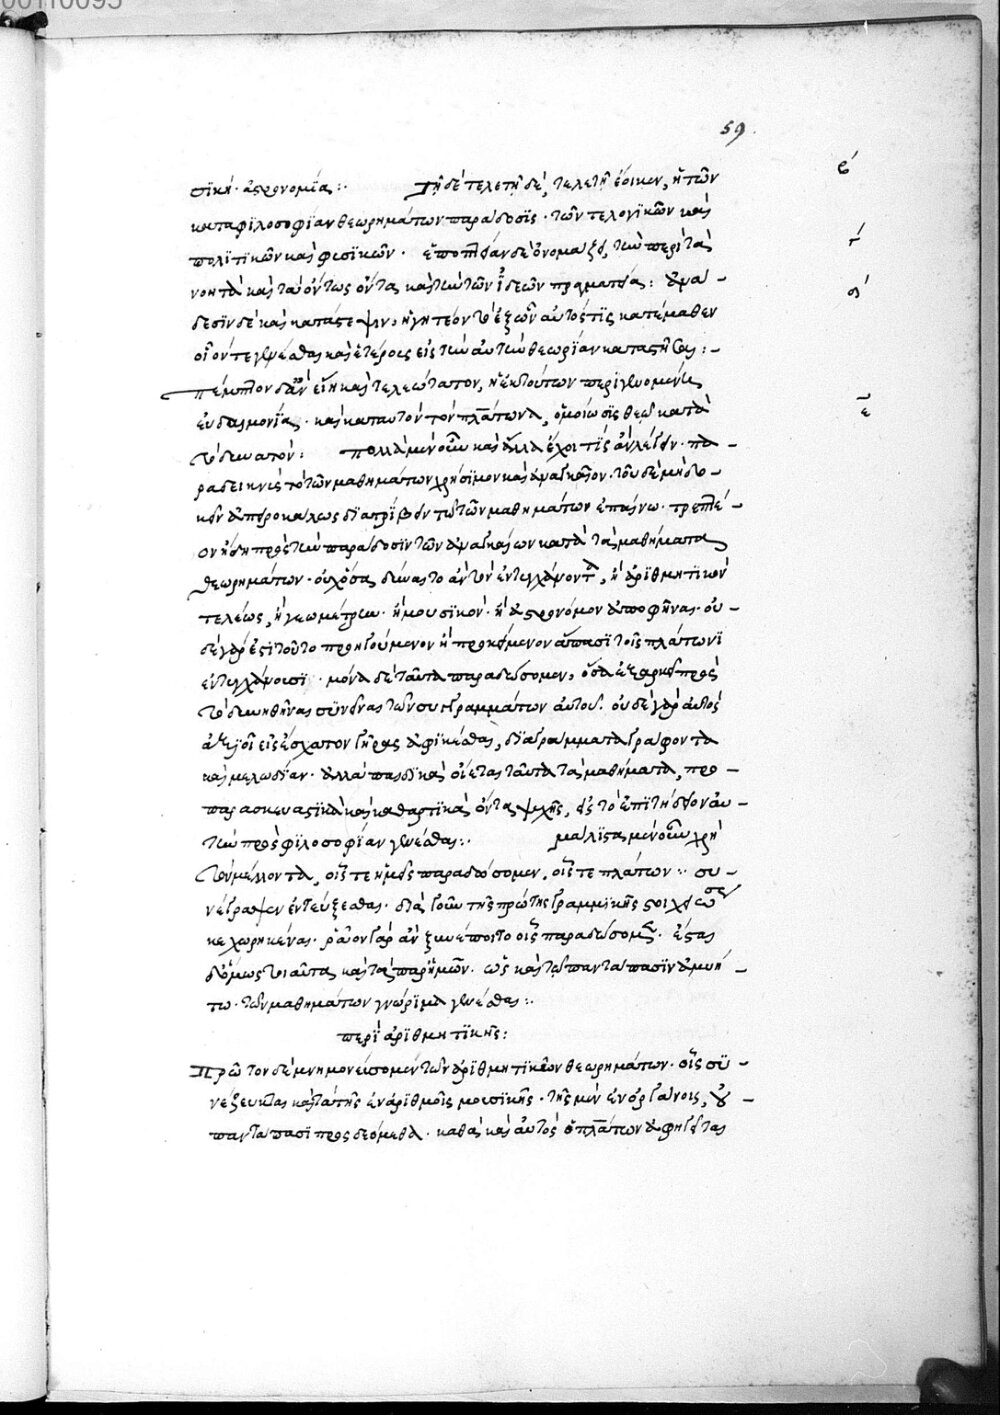 00110095
59
σϊκή· ἀστρονομία :· Τῇ δὲ τελετῇ δὲ, τελετῇ ἔοικεν, ἡ τῶν
β´
κατα φϊλοσοφίαν θεωρημάτων παράδοσϊς· τῶν τε λογϊκῶν καὶ
πολϊτϊκῶν καὶ φυσϊκῶν· ἐποπτείαν δὲ ὀνομάζει, τὴν περὶ τὰ
γ´
νοητὰ καὶ τὰ ὄντως ὄντα καὶ τὴν τῶν ἰδεῶν πραγματείαν : ἀνά –
δ´
δεσϊν δὲ καὶ κατάστεψιν, ἡγητέον τὸ ἐξ ὧν αὐτός τϊς κατέμαθεν
οἷόν τε γενέσθαι καὶ ἑτέρους εἰς τὴν αὐτὴν θεωρίαν καταστῆσαι : –
πέμπτον δ' ἂν εἴη καὶ τελεώτατον, ἡ ἐκ τούτων περιγενομένη
ε´
εὐδαιμονία· καὶ κατ' αὐτὸν τὸν πλάτωνα, ὁμοίωσϊς θεῷ κατὰ
τὸ δυνατόν : πολλὰ μὲν οὖν καὶ ἄλλα ἔχοι τϊς ἂν λέγειν· πα –
ραδεικνὺς τὸ τῶν μαθημάτων χρήσϊμον καὶ ἀναγκαῖον· τοῦ δὲ μὴ δο –
κεῖν ἀπειροκάλως δϊατρίβειν τῷ τῶν μαθημάτων ἐπαίνῳ· τρεπτέ –
ον ἤδη πρὸς τὴν παράδοσϊν τῶν ἀναγκαίων κατὰ τὰ μαθήματα
θεωρημάτων· οὐχ ὅσα δύναιτο ἂν τὸν ἐντυγχάνοντα, ἢ ἀρϊθμητϊκὸν
τελέως, ἢ γεωμέτρην· ἢ μουσϊκὸν· ἢ ἀστρονόμον ἀποφῆναι· οὐ –
δὲ γάρ ἐστι τοῦτο προηγούμενον ἢ προκείμενον ἅπασϊ τοῖς πλάτωνϊ
ἐντυγχάνουσϊ· μόνα δὲ ταῦτα παραδώσομεν, ὅσα ἐξαρκεῖ πρὸς
τὸ δυνηθῆναι συνεῖναι τῶν συγγραμμάτων αὐτοῦ· οὐδὲ γὰρ αὐτὸς
ἀξϊοῖ εἰς ἔσχατον γῆρας ἀφϊκέσθαι, δϊαγράμματα γράφοντα
καὶ μελῳδίαν· ἀλλὰ παισὶ καὶ οἴεται ταῦτα τὰ μαθήματα, προ –
παρασκευαστϊκὰ καὶ καθαρτϊκὰ ὄντα ψυχῆς, εἰς τὸ ἐπϊτήδειον αὐ –
τὴν πρὸς φϊλοσοφίαν γενέσθαι :· μάλϊστα μὲν οὖν χρὴ
τὸν μέλλοντα, οἷς τε ἡμεῖς παραδώσομεν, οἷς τε πλάτων :· συ –
νέγραψεν ἐντεύξεσθαι· διὰ γοῦν τῆς πρώτης γραμμϊκῆς στοιχειώσεως
κεχωρηκέναι· ῥᾷον γὰρ ἂν ξυνέποιτο οἷς παραδώσομεν· ἔσται
δ' ὅμως τοιαῦτα καὶ τὰ παρ' ἡμῶν· ὡς καὶ τῷ παντάπασϊν ἀμυή –
τῳ· τῶν μαθημάτων γνώρϊμα γενέσθαι :·
περὶ ἀρϊθμητϊκῆς :
Πρῶτον δὲ μνημονεύσομεν τῶν ἀρϊθμητϊκῶν θεωρημάτων· οἷς συ –
νέζευκται καὶ τὰ τῆς ἐν ἀρϊθμοῖς μουσϊκῆς· τῆς μὲν ἐν ὀργάνοις, οὐ –
παντάπασϊ προσδεόμεθα· καθὰ καὶ αὐτὸς ὁ πλάτων ἀφηγεῖται